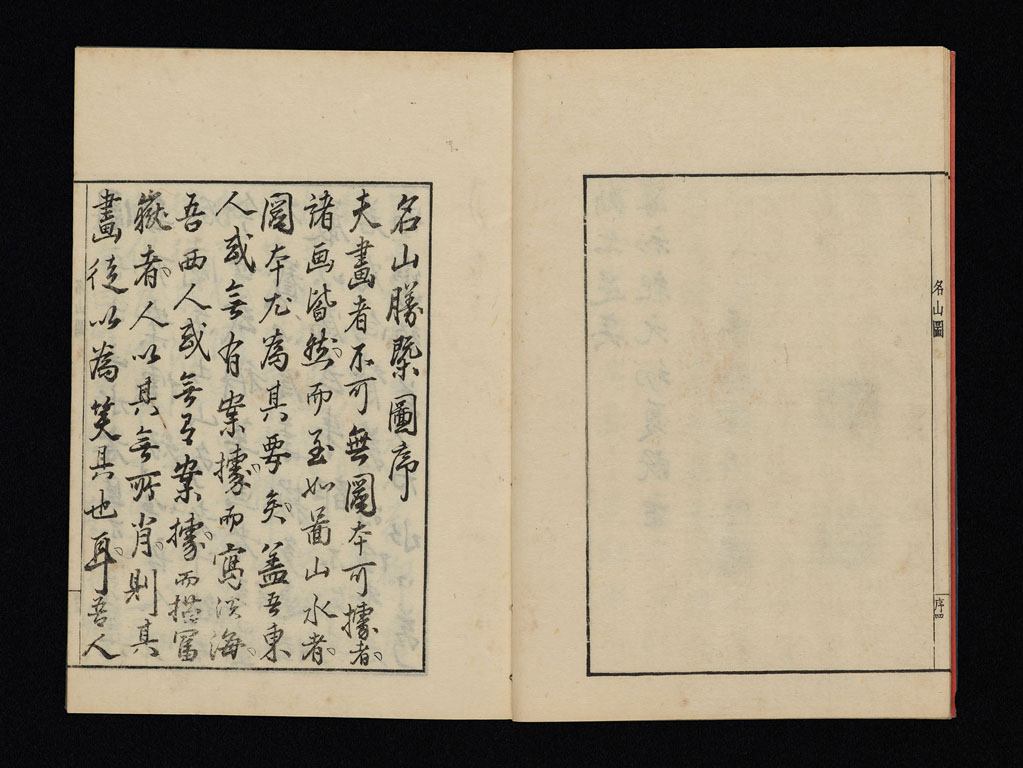 名山圖
序四
名山勝槩圖序
夫畫者不可無圖本可據者
諸画皆然而至如啚山水者
圖本尤為其要矣盖吾東
人或無有案據而寫溟海
吾西人或無有案據而描冨
嶽者人以其無所肖則其
畫徒以為笑具也耳吾人